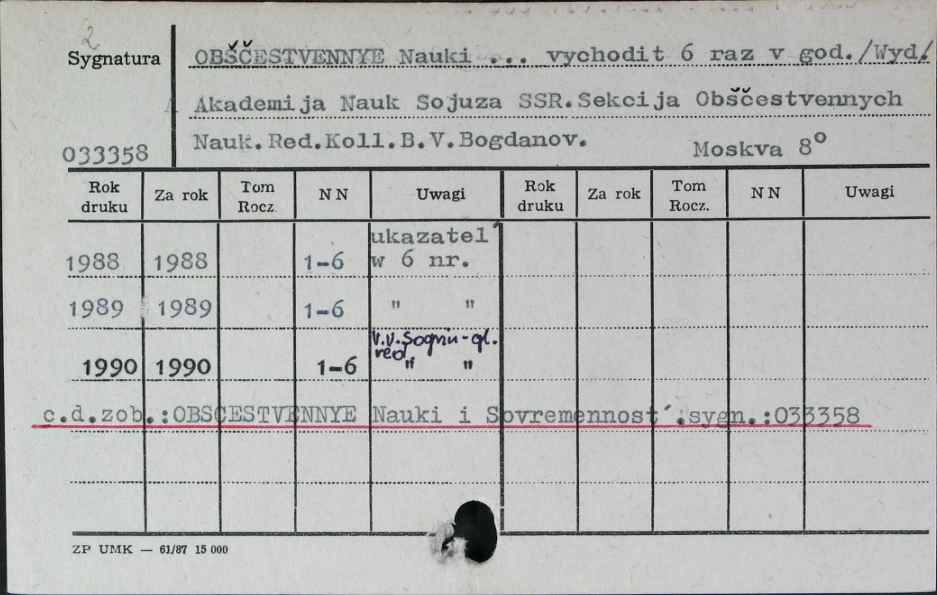 2
Sygnatura
OBŠČESTVENNYE Nauki ... vychodit 6 raz v god./Wyd.
Akademija Nauk Sojuza SSR.Sekcija Obščestvennych
Nauk.Red.Koll.B.V.Bogdanov.
033358
Moskva 8°
Rok druku Za rok Tom Rocz. N N Uwagi Rok druku Za rok Tom Rocz. N N Uwagi
ukazatel´
1988 1988 1-6 w 6 nr.
1989 1989 1-6 " "
V.V.Sogrin-gl.
red.
1990 1990 1-6 " "
c.d.zob.:OBSCESTVENNYE Nauki i Sovremennost´.sygn.:033358
ZP UMK — 61/87 15 000